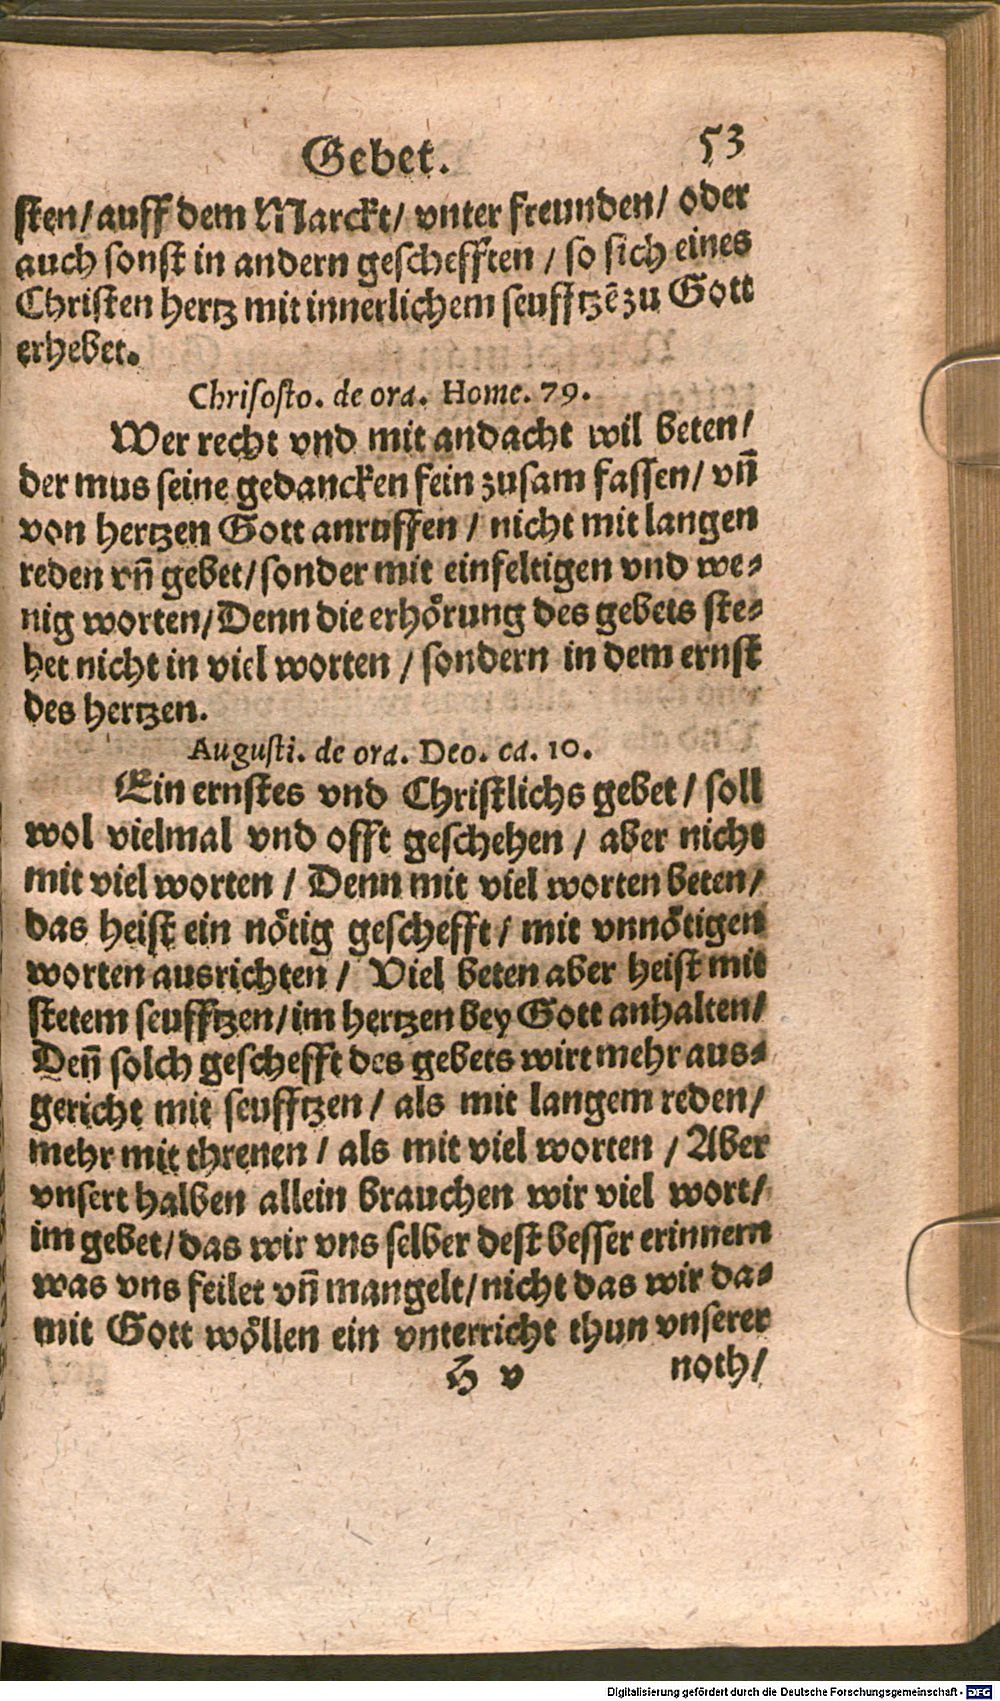 Gebet. 53
sten/ auff dem Marckt/ vnter freunden/ oder
auch sonst in andern geschefften / so sich eines
Christen hertz mit innerlichem seufftzē zu Gott
erhebet.
Chrisosto. de ora. Home. 79.
Wer recht vnd mit andacht wil beten/
der mus seine gedancken fein zusam fassen/ vn̄
von hertzen Gott anruffen / nicht mit langen
reden vn̄ gebet/ sonder mit einfeltigen vnd we-
nig worten/ Denn die erhörung des gebets ste-
het nicht in viel worten / sondern in dem ernst
des hertzen.
Augusti. de ora. Deo. ca. 10.
Ein ernstes vnd Christlichs gebet / soll
wol vielmal vnd offt geschehen / aber nicht
mit viel worten / Denn mit viel worten beten/
das heist ein nötig geschefft / mit vnnötigen
worten ausrichten / Viel beten aber heist mit
stetem seufftzen/ im hertzen bey Gott anhalten/
Deñ solch geschefft des gebets wirt mehr aus-
gericht mit seufftzen / als mit langem reden/
mehr mit threnen / als mit viel worten / Aber
vnsert halben allein brauchen wir viel wort/
im gebet/ das wir vns selber dest besser erinnern
was vns feilet vn̄ mangelt/ nicht das wir da-
mit Gott wöllen ein vnterricht thun vnserer
H v noth/
Digitalisierung gefördert durch die Deutsche Forschungsgemeinschaft - DFG